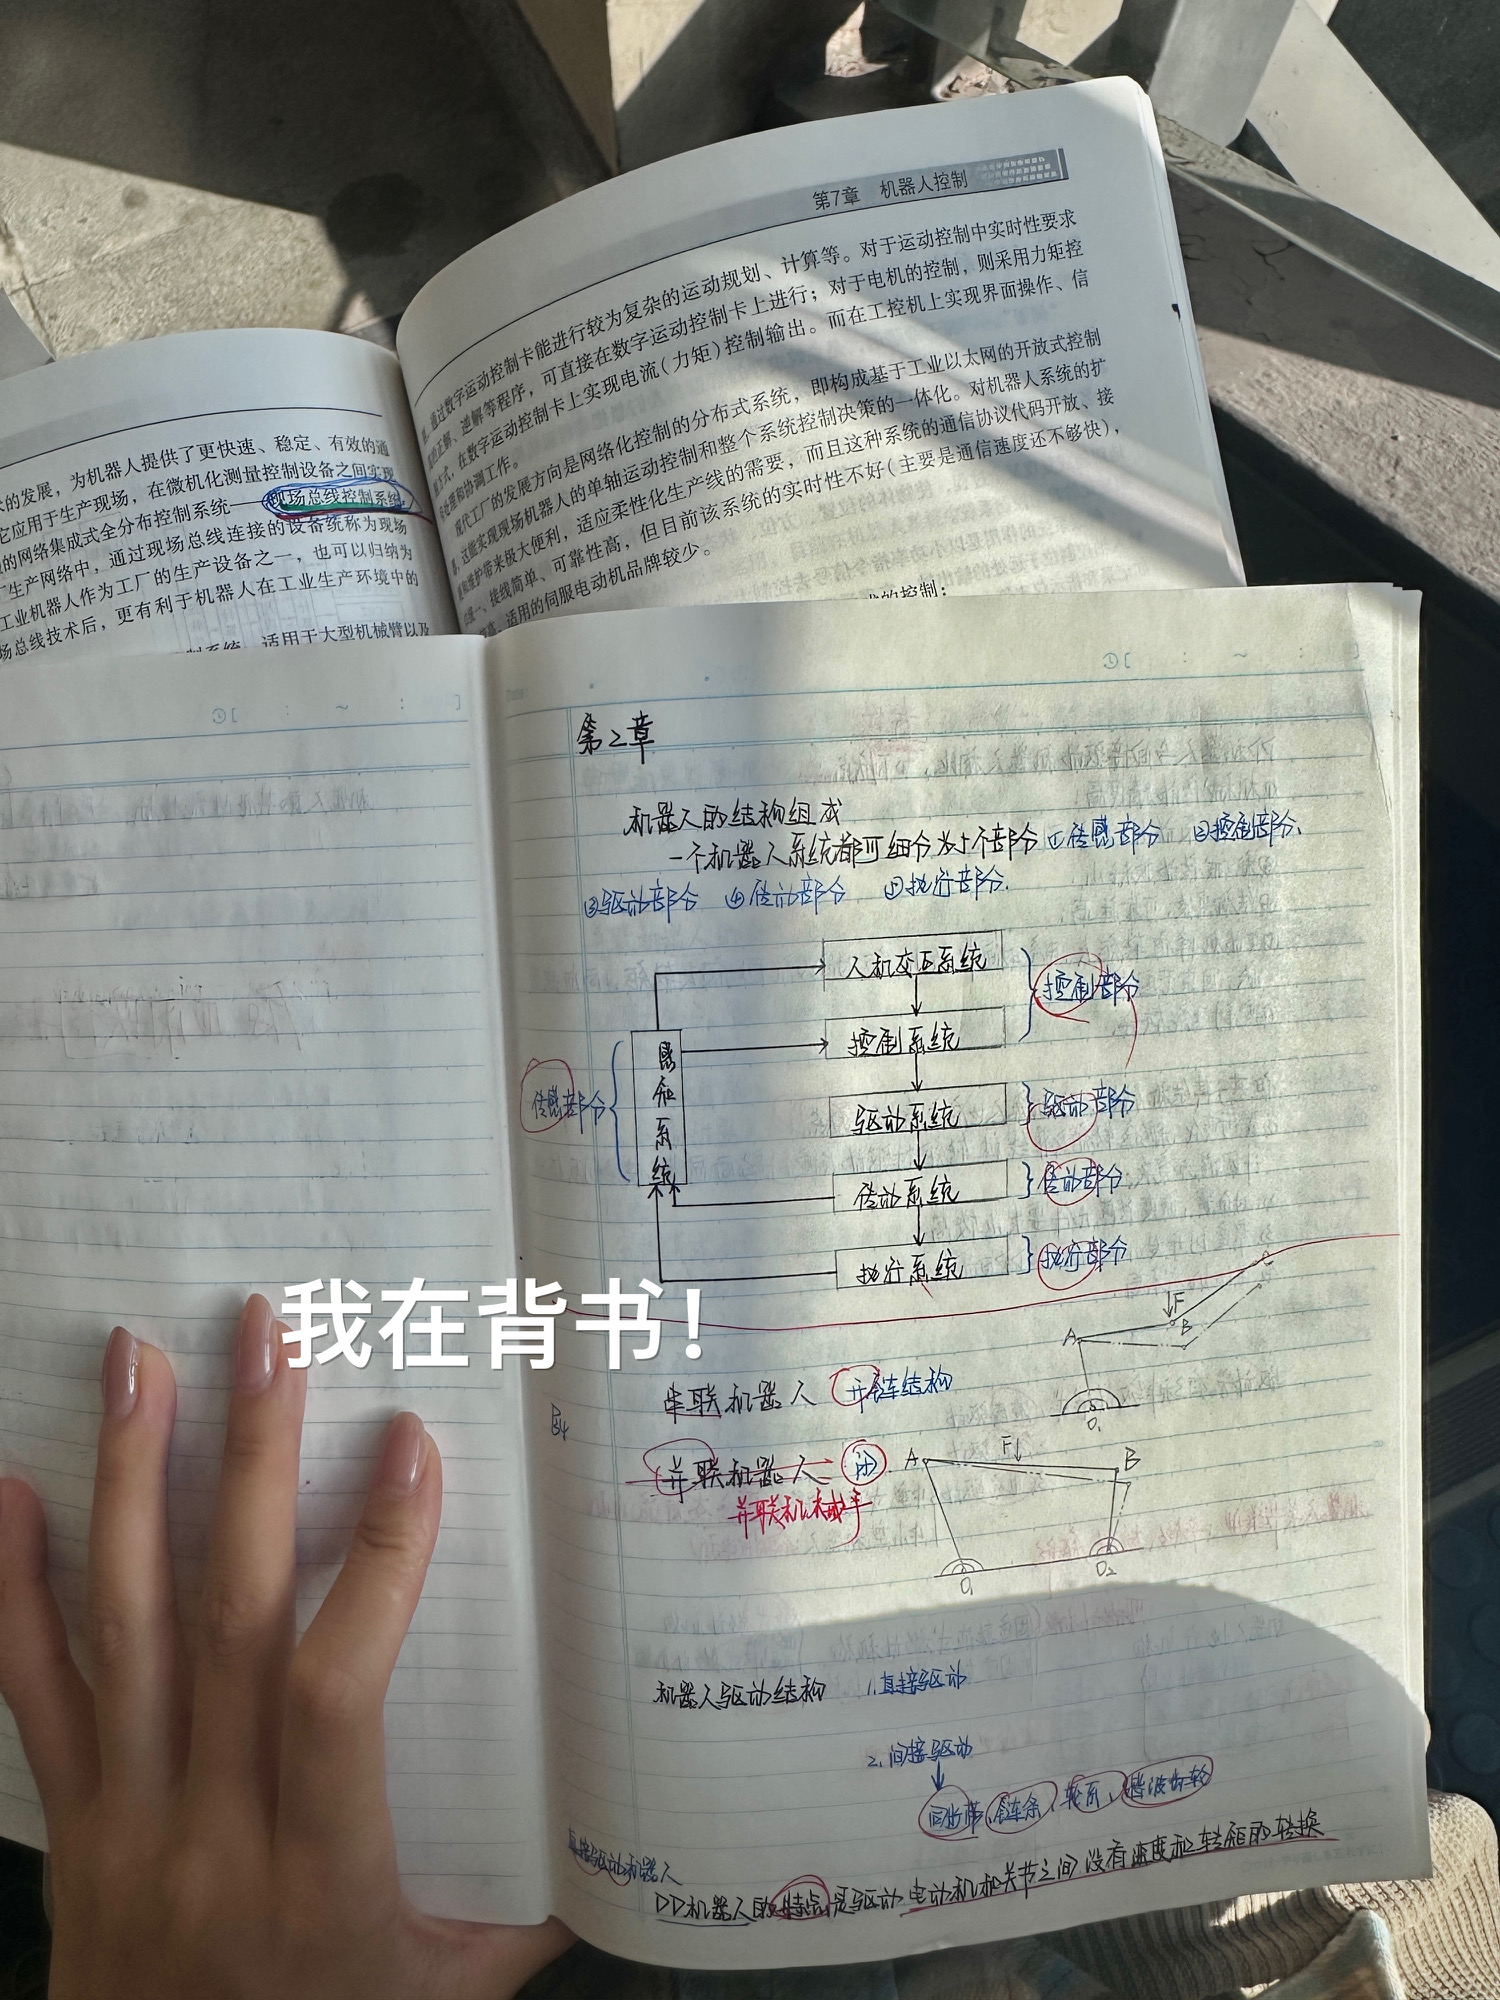 第7章 机器人控制
通过数字运动控制卡能进行较为复杂的运动规划、计算等。对于运动控制中实时性要求
正解、逆解等程序，可直接在数字运动控制卡上进行；对于电机的控制，则采用力矩控
方式，在数字运动控制卡上实现电流(力矩)控制输出。而在工控机上实现界面操作、信
处理和协调工作。
现代工厂的发展方向是网络化控制的分布式系统，即构成基于工业以太网的开放式控制
这能实现现场机器人的单轴运动控制和整个系统控制决策的一体化。对机器人系统的扩
和维护带来极大便利，适应柔性化生产线的需要，而且这种系统的通信协议代码开放、接
一、接线简单、可靠性高，但目前该系统的实时性不好(主要是通信速度还不够快)，
适用的伺服电动机品牌较少。
的控制：
的发展，为机器人提供了更快速、稳定、有效的通
它应用于生产现场，在微机化测量控制设备之间实现
的网络集成式全分布控制系统——现场总线控制系统
生产网络中，通过现场总线连接的设备统称为现场
工业机器人作为工厂的生产设备之一，也可以归纳为
场总线技术后，更有利于机器人在工业生产环境中的
制系统，适用于大型机械臂以及
第2章
机器人的结构组成
一个机器人系统都可细分为5个部分 ①传感部分 ②控制部分、
③驱动部分 ④传动部分 ⑤执行部分.
人机交互系统
控制部分
控制系统
感知系统
传感部分
驱动系统
驱动部分
传动系统
传动部分
执行系统
执行部分
我在背书！
F
A
B
O₁
串联机器人 开链结构
并联机器人 闭
并联机械手
A
F
B
O₁
O₂
机器人驱动结构 1.直接驱动
2.间接驱动
同步带、链条、轮系、谐波齿轮
直接驱动机器人
DD机器人的特点是驱动电动机和关节之间没有速度和转矩的转换